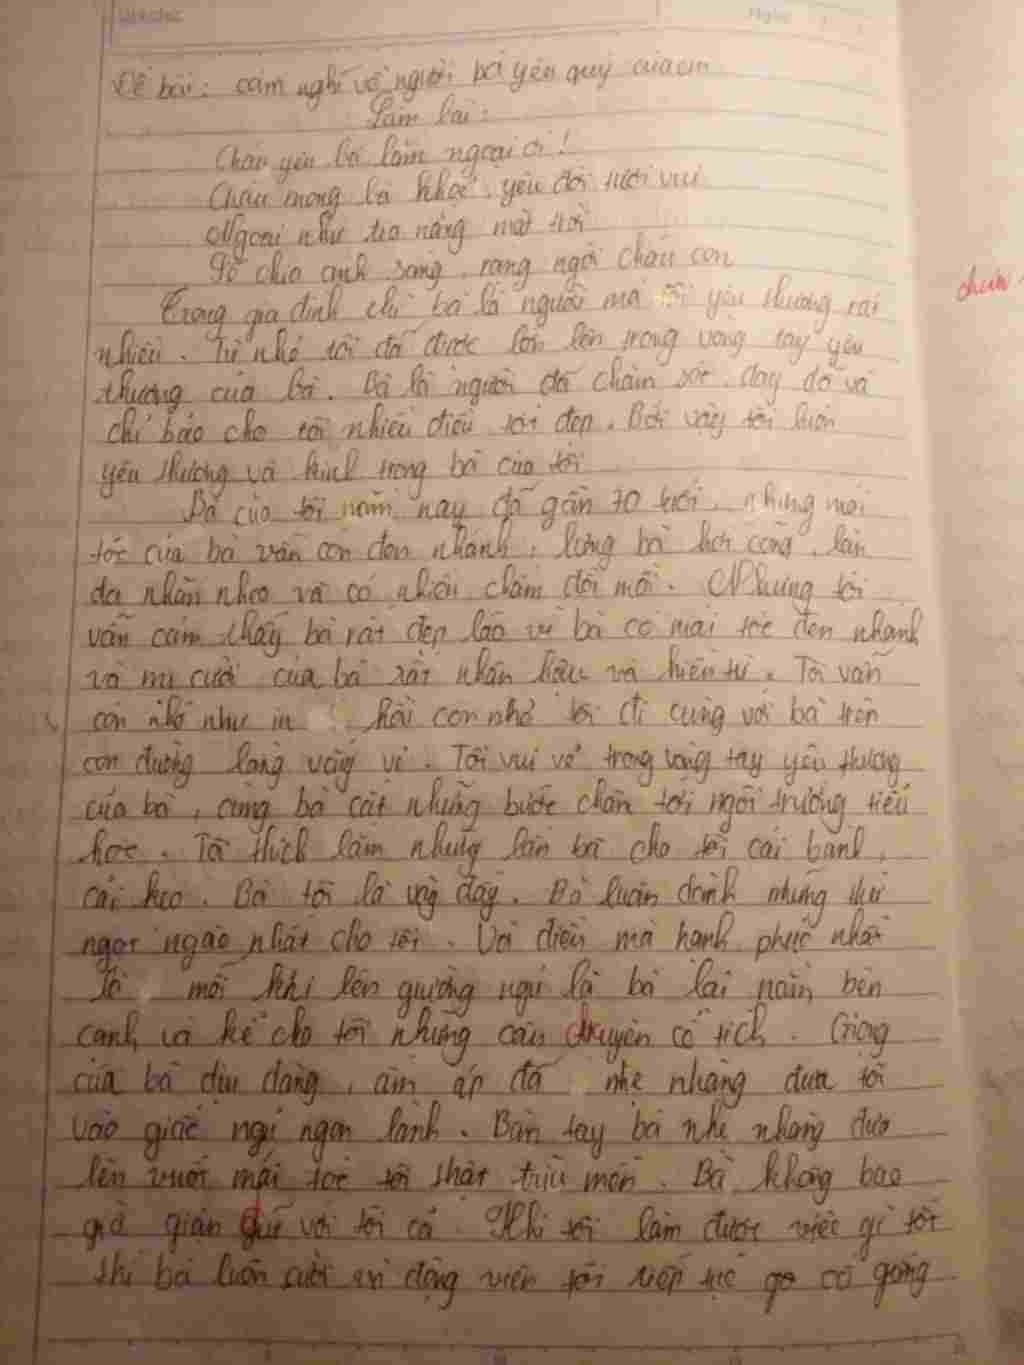 Đề bài: cảm nghĩ về người bà yêu quý của em
Làm bài:
Cháu yêu bà lắm ngoại ơi!
Cháu mong bà khoẻ, yêu đời tươi vui
Ngoại như tia nắng mặt trời
Để cho ánh sáng, rạng ngời cháu con
Trong gia đình thì bà là người mà tôi yêu thương rất
nhiều. Từ nhỏ tôi đã được lớn lên trong vòng tay yêu
thương của bà. Bà là người đã chăm sóc, dạy dỗ và
chỉ bảo cho tôi nhiều điều tốt đẹp. Bởi vậy tôi luôn
yêu thương và kính trọng bà của tôi
Bà của tôi năm nay đã gần 70 tuổi, nhưng mái
tóc của bà vẫn còn đen nhánh, lưng bà hơi còng, làn
da nhăn nheo và có nhiều chấm đồi mồi. Nhưng tôi
vẫn cảm thấy bà rất đẹp lão vì bà có mái tóc đen nhánh
và nụ cười của bà rất nhân hậu và hiền từ. Tôi vẫn
còn nhớ như in hồi còn nhỏ tôi đi cùng với bà trên
con đường làng vắng vẻ. Tôi vui vẻ trong vòng tay yêu thương
của bà, cùng bà cất những bước chân tới ngôi trường tiểu
học. Tôi thích lắm những lần bà cho tôi cái bánh,
cái kẹo. Bà tôi là vậy đấy. Bà luôn dành những thứ
ngọt ngào nhất cho tôi. Và điều mà hạnh phúc nhất
là mỗi khi lên giường ngủ là bà lại nằm bên
cạnh và kể cho tôi những câu chuyện cổ tích. Giọng
của bà dịu dàng, ấm áp đã nhẹ nhàng đưa tôi
vào giấc ngủ ngon lành. Bàn tay bà nhẹ nhàng đưa
lên vuốt mái tóc tôi thật trìu mến. Bà không bao
giờ giận giữ với tôi cả. Khi tôi làm được việc gì tốt
thì bà luôn cười và động viên tôi tiếp tục cố gắng